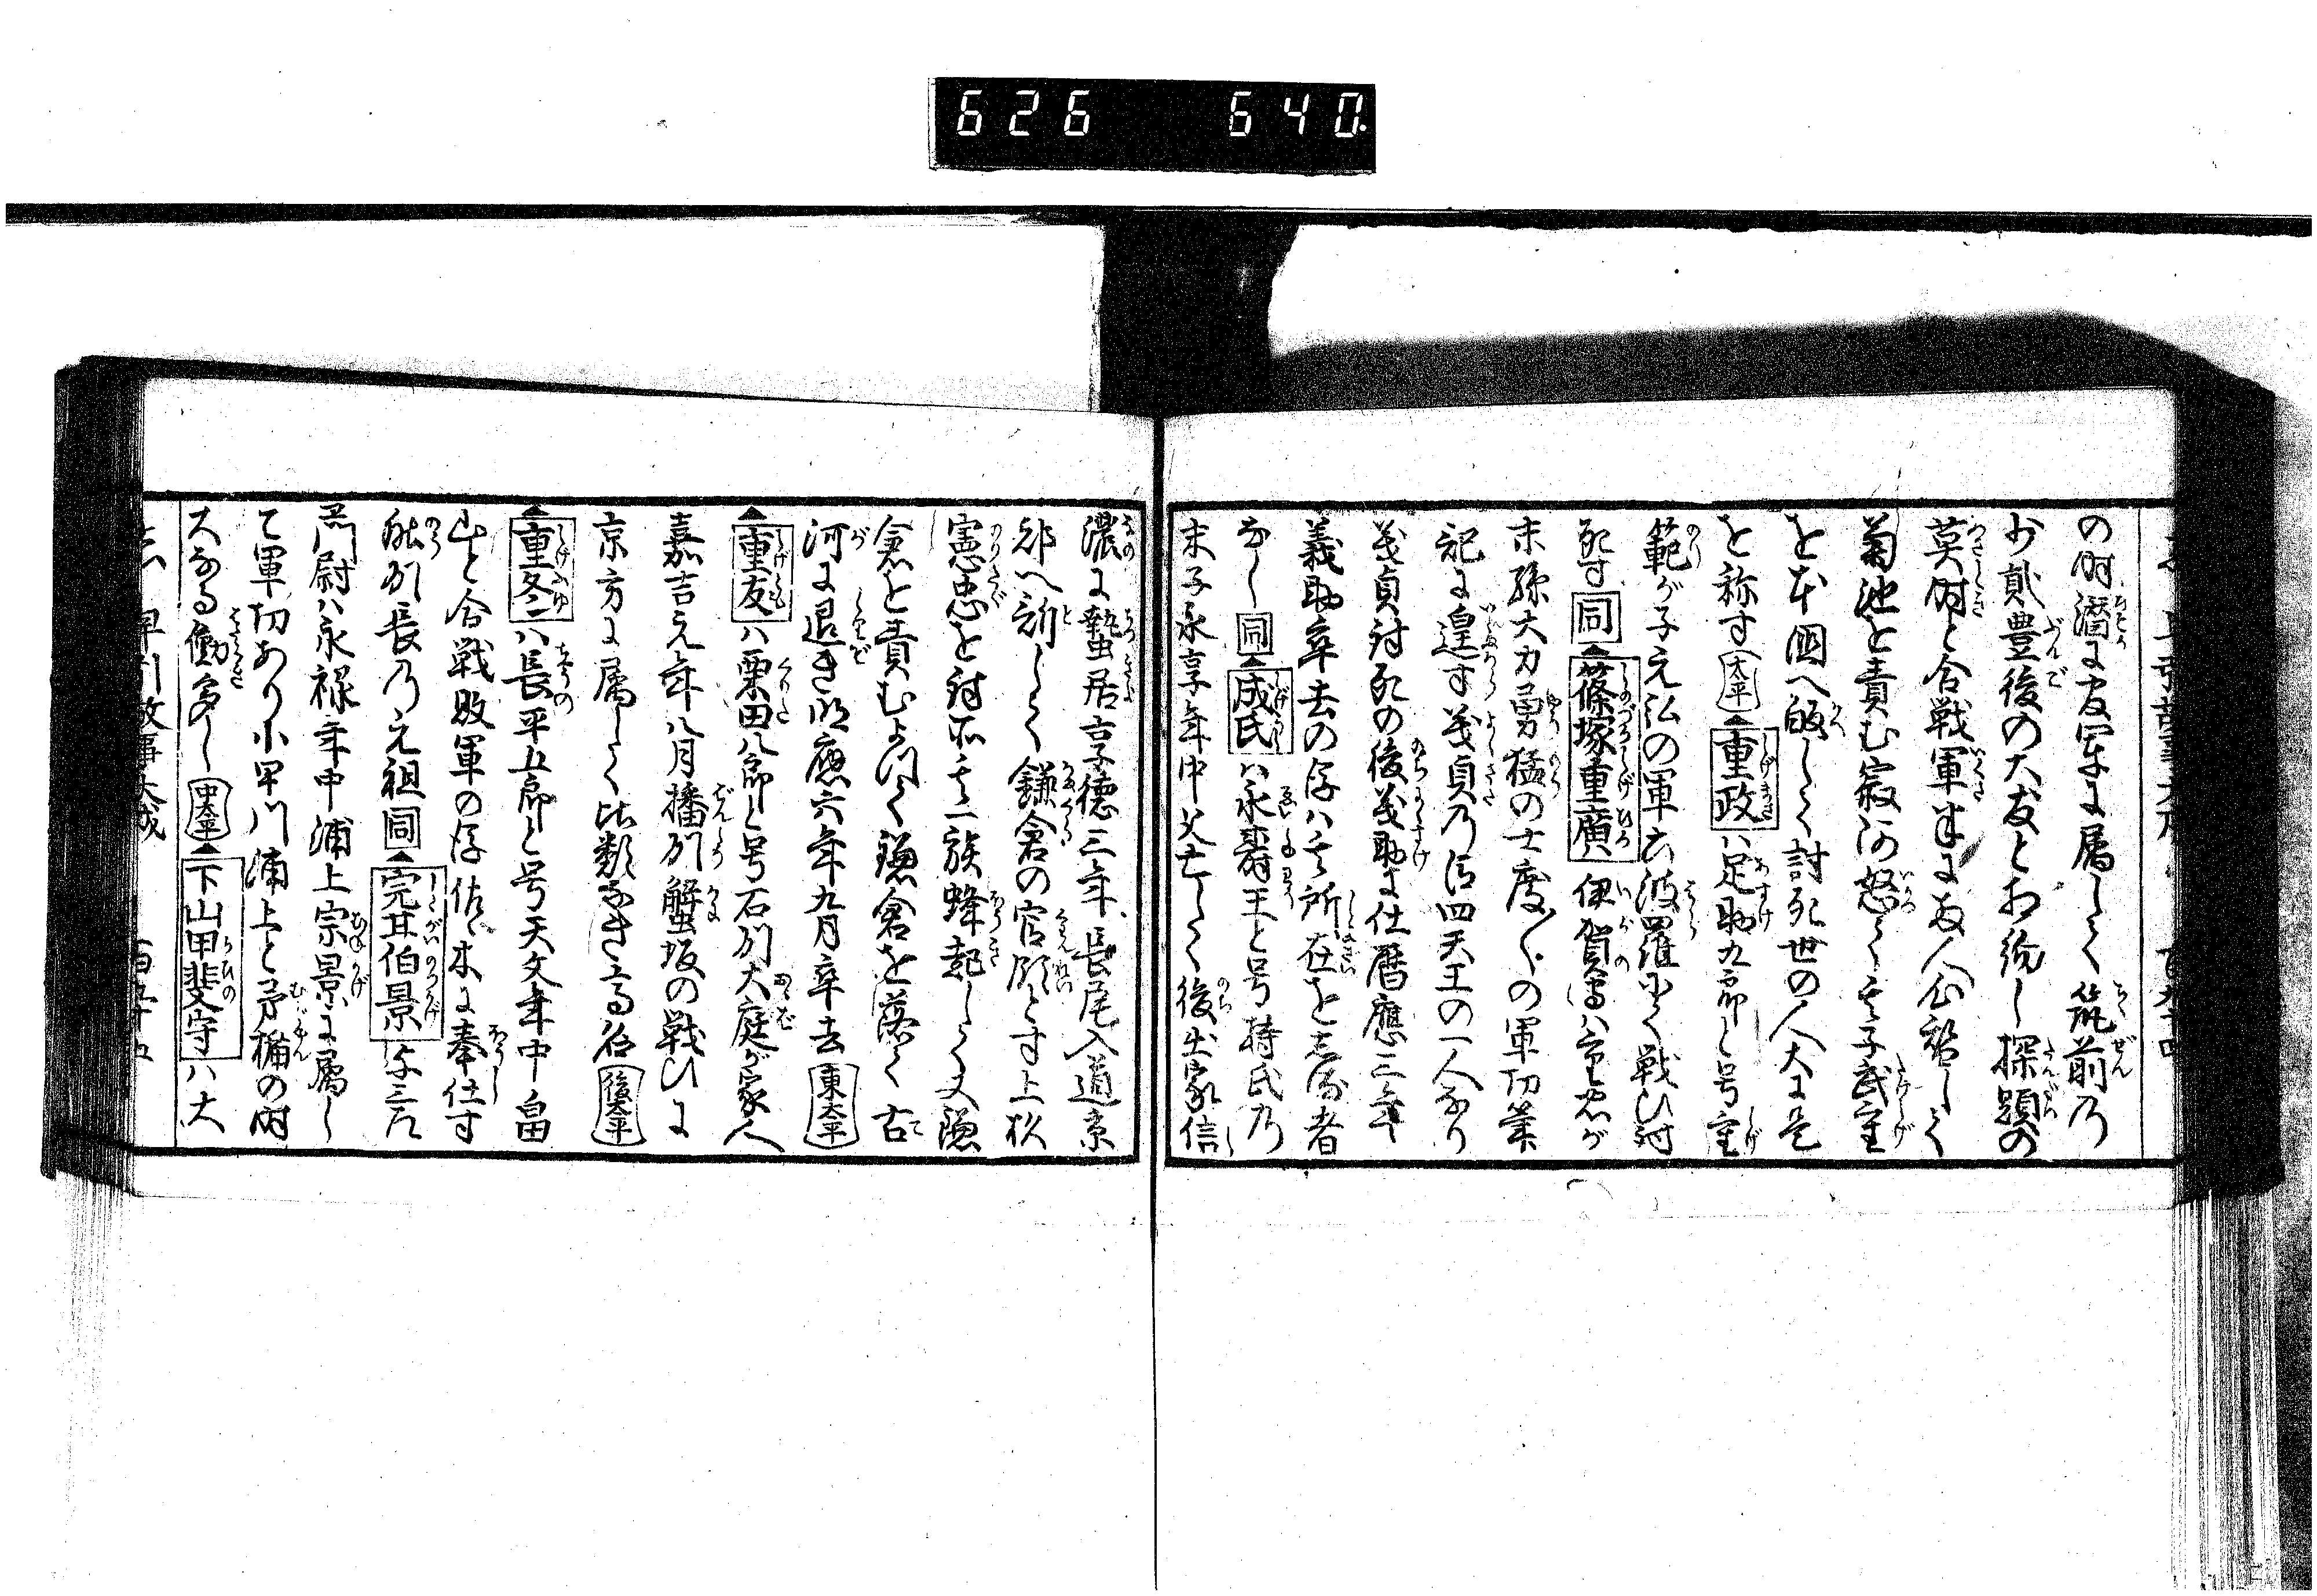 626 640
の時潜に官軍に属して筑前乃
少貳豊後の大友とお約し探題の
英時と合戦軍半に両人心替して
菊池を責む寂阿怒て其子武重
を本国へ皈して討死世の人大に是
を称す 太平 重政ハ足助九郎と号重
範が子元弘の軍六波羅にて戦ひ討
死す 同 篠塚重廣 伊賀守ハ重忠が
末孫大力勇猛の士度〱の軍功筆
記に遑す義貞乃臣四天王の一人なり
義貞討死の後義助に仕暦應三年
義助卒去の後ハ其所在を知る者
なし 同 成氏ハ永壽王と号持氏乃
末子永享年中父亡して後出家信
濃に蟄居享徳三年長尾入道京
都へ訴して鎌倉の官領とす上杉
憲忠を討て其一族蜂起して又鎌
倉を責むよつて鎌倉を落て古
河に退き明應六年九月卒去 東太平
重友ハ栗田八郎と号石州大庭が家人
嘉吉元年八月播州蟹坂の戦ひに
京方に属して比類なき高名 後太平
重冬ハ長平五郎と号天文年中畠
山と合戦敗軍の後佐々木に奉仕す
能州長乃元祖 同 完甘伯景 与三左
衛門尉ハ永禄年中浦上宗景に属し
て軍功あり小早川浦上と矛楯の時
大なる働多し 中太平 下山甲斐守ハ大
早引故事大成 百五十五